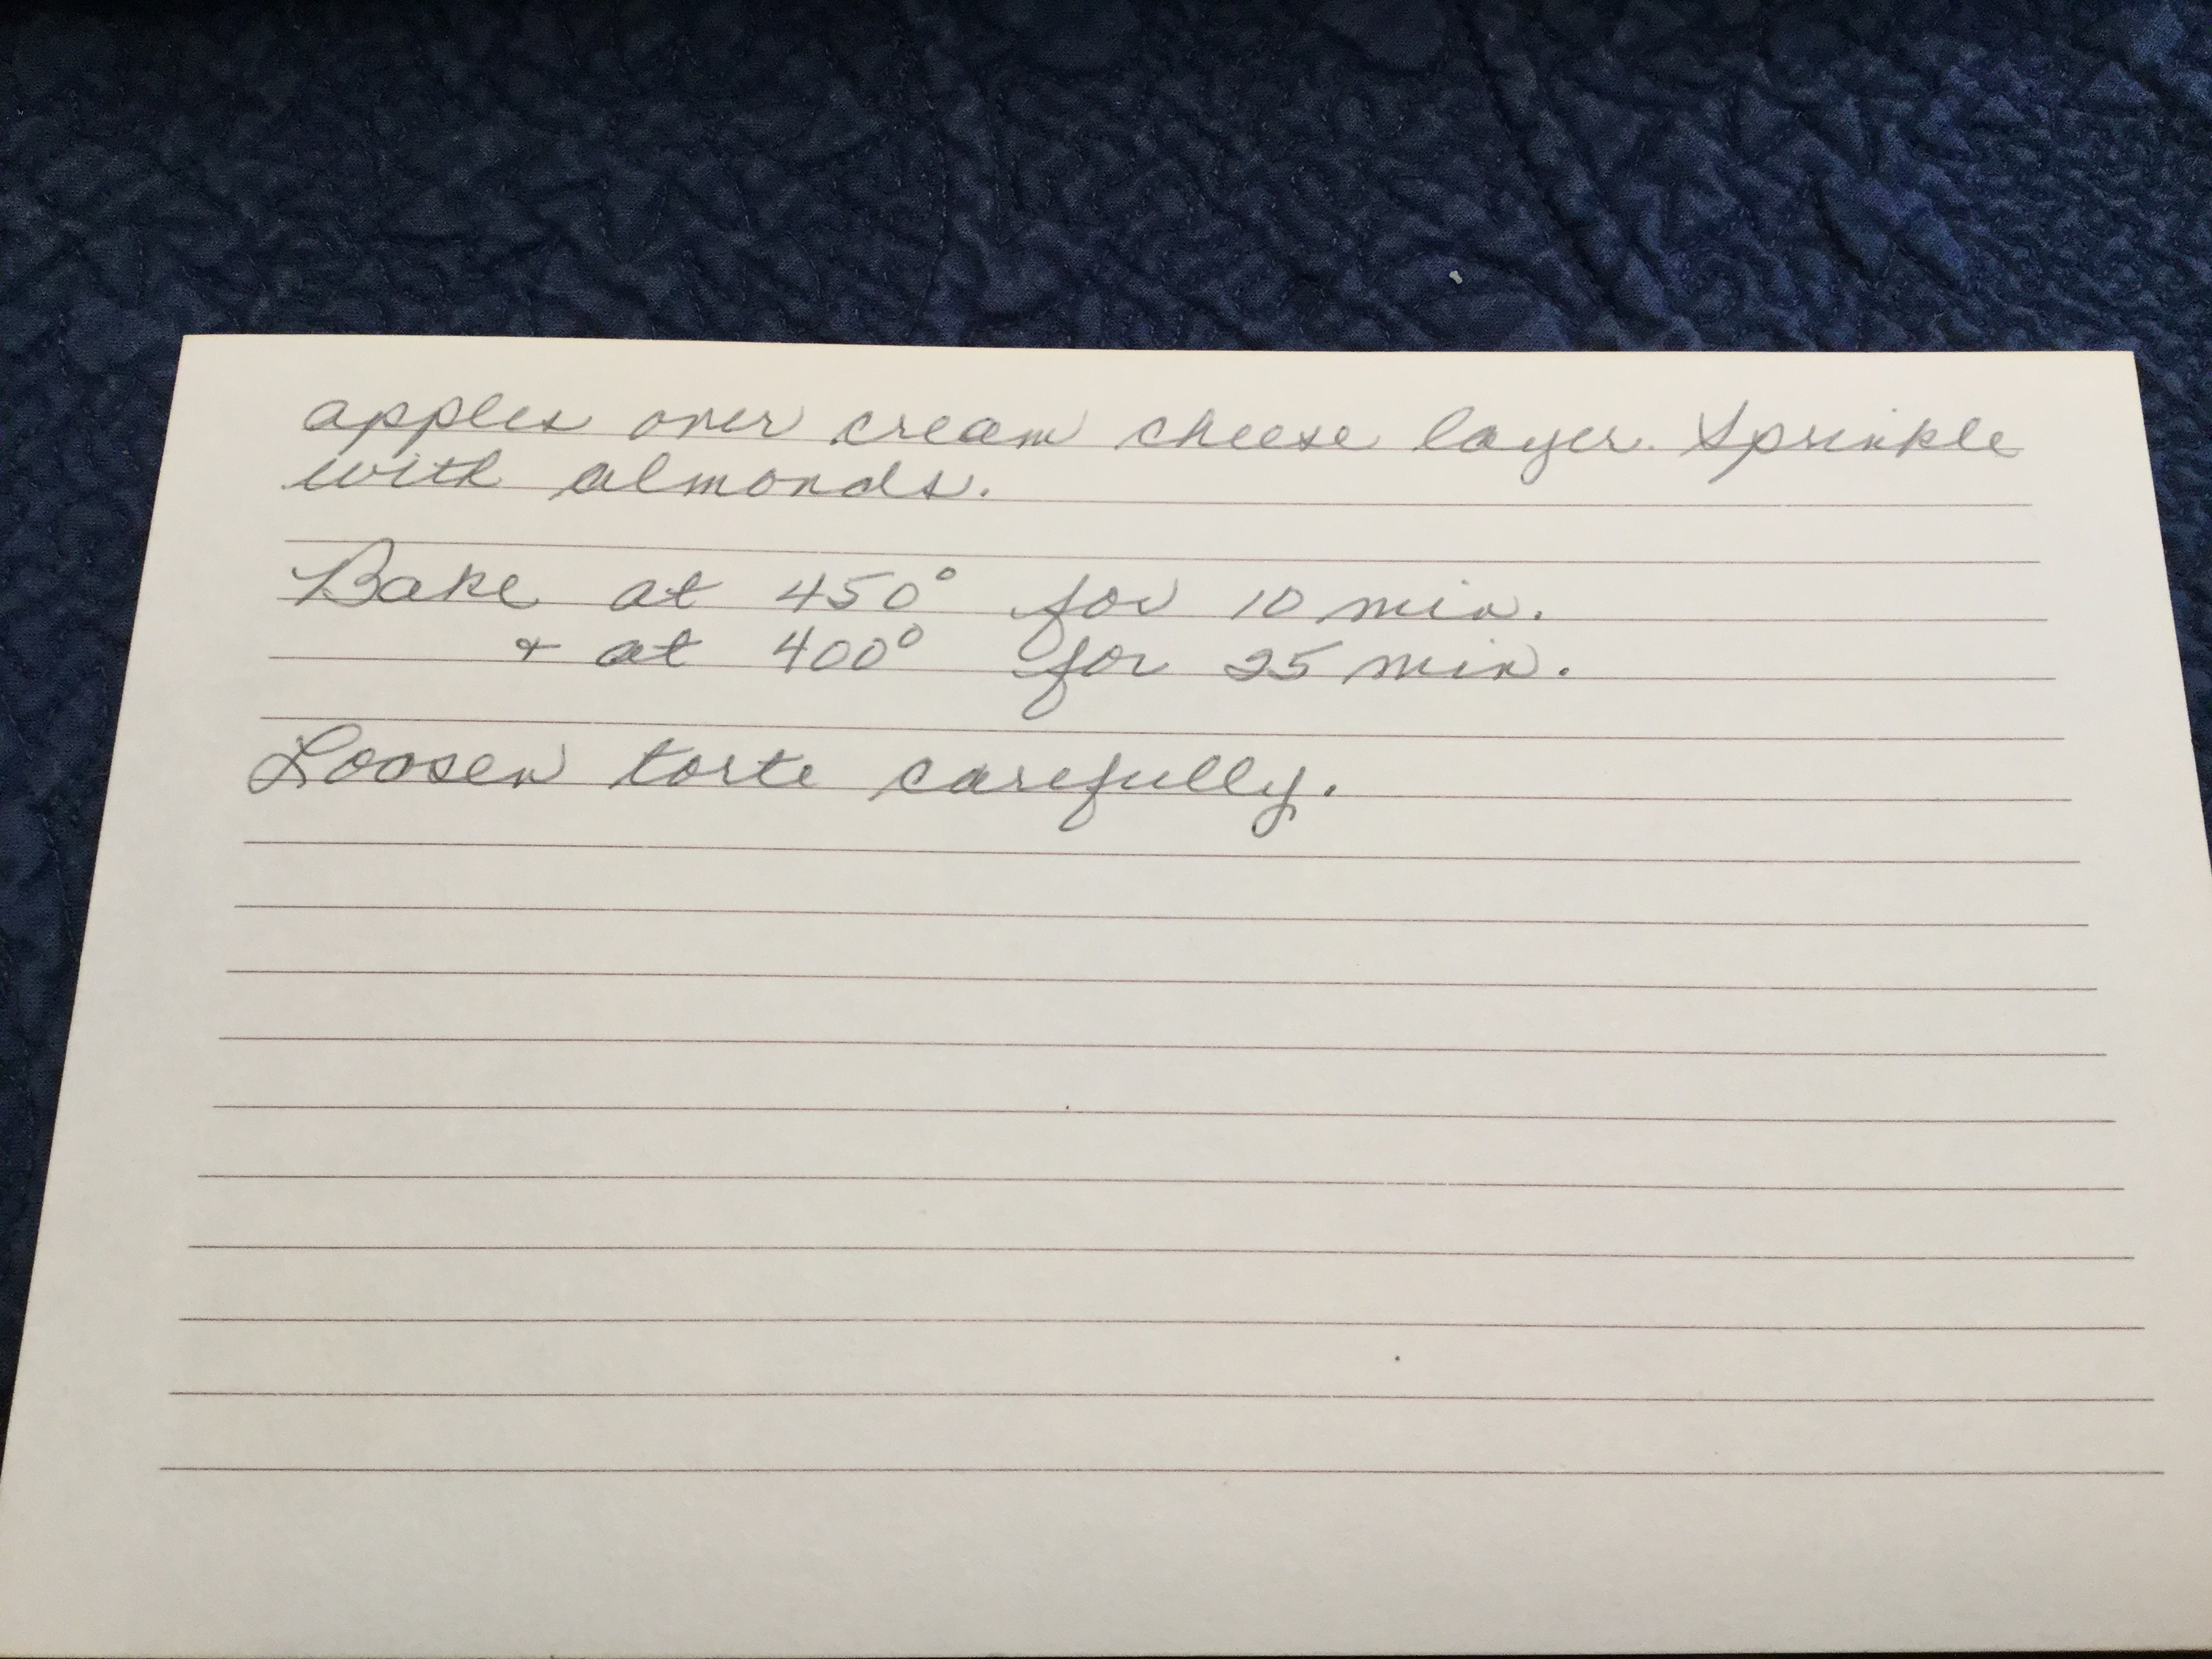 apples over cream cheese layer. Sprinkle
with almonds.
Bake at 450° for 10 min.
& at 400° for 25 min.
Loosen torte carefully.